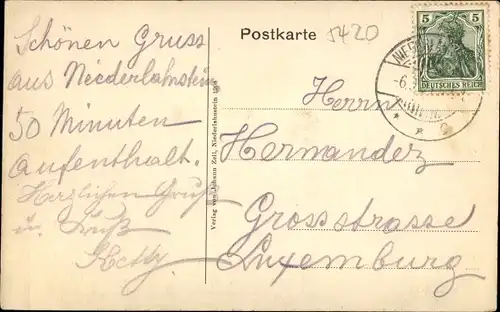 Postkarte
5420
5
5
DEUTSCHES REICH
Schönen Gruss
aus Niederlahnstein
50 Minuten
Aufenthalt.
Herzlichen Gruß
u. Kuß
Ketty.
Verlag von Johann Zell, Niederlahnstein
Herrn
Hernandez
Grossstrasse
Luxemburg